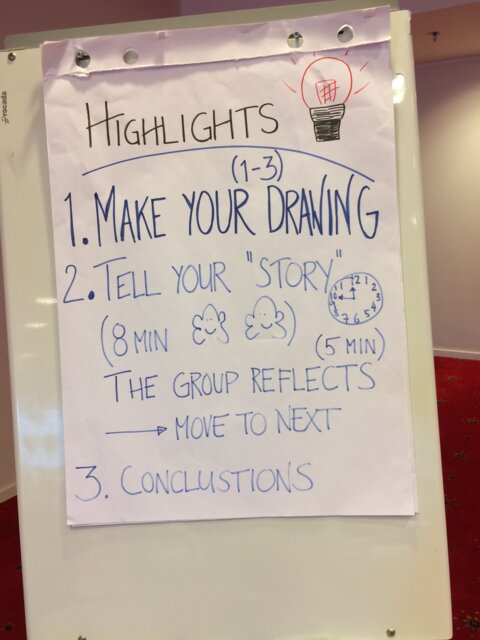 HIGHLIGHTS
(1-3)
1. MAKE YOUR DRANING
2. TELL YOUR "STORY"
(8 MIN )
(5 MIN)
THE GROUP REFLECTS
→ MOVE TO NEXT
3. CONCLUSTIONS